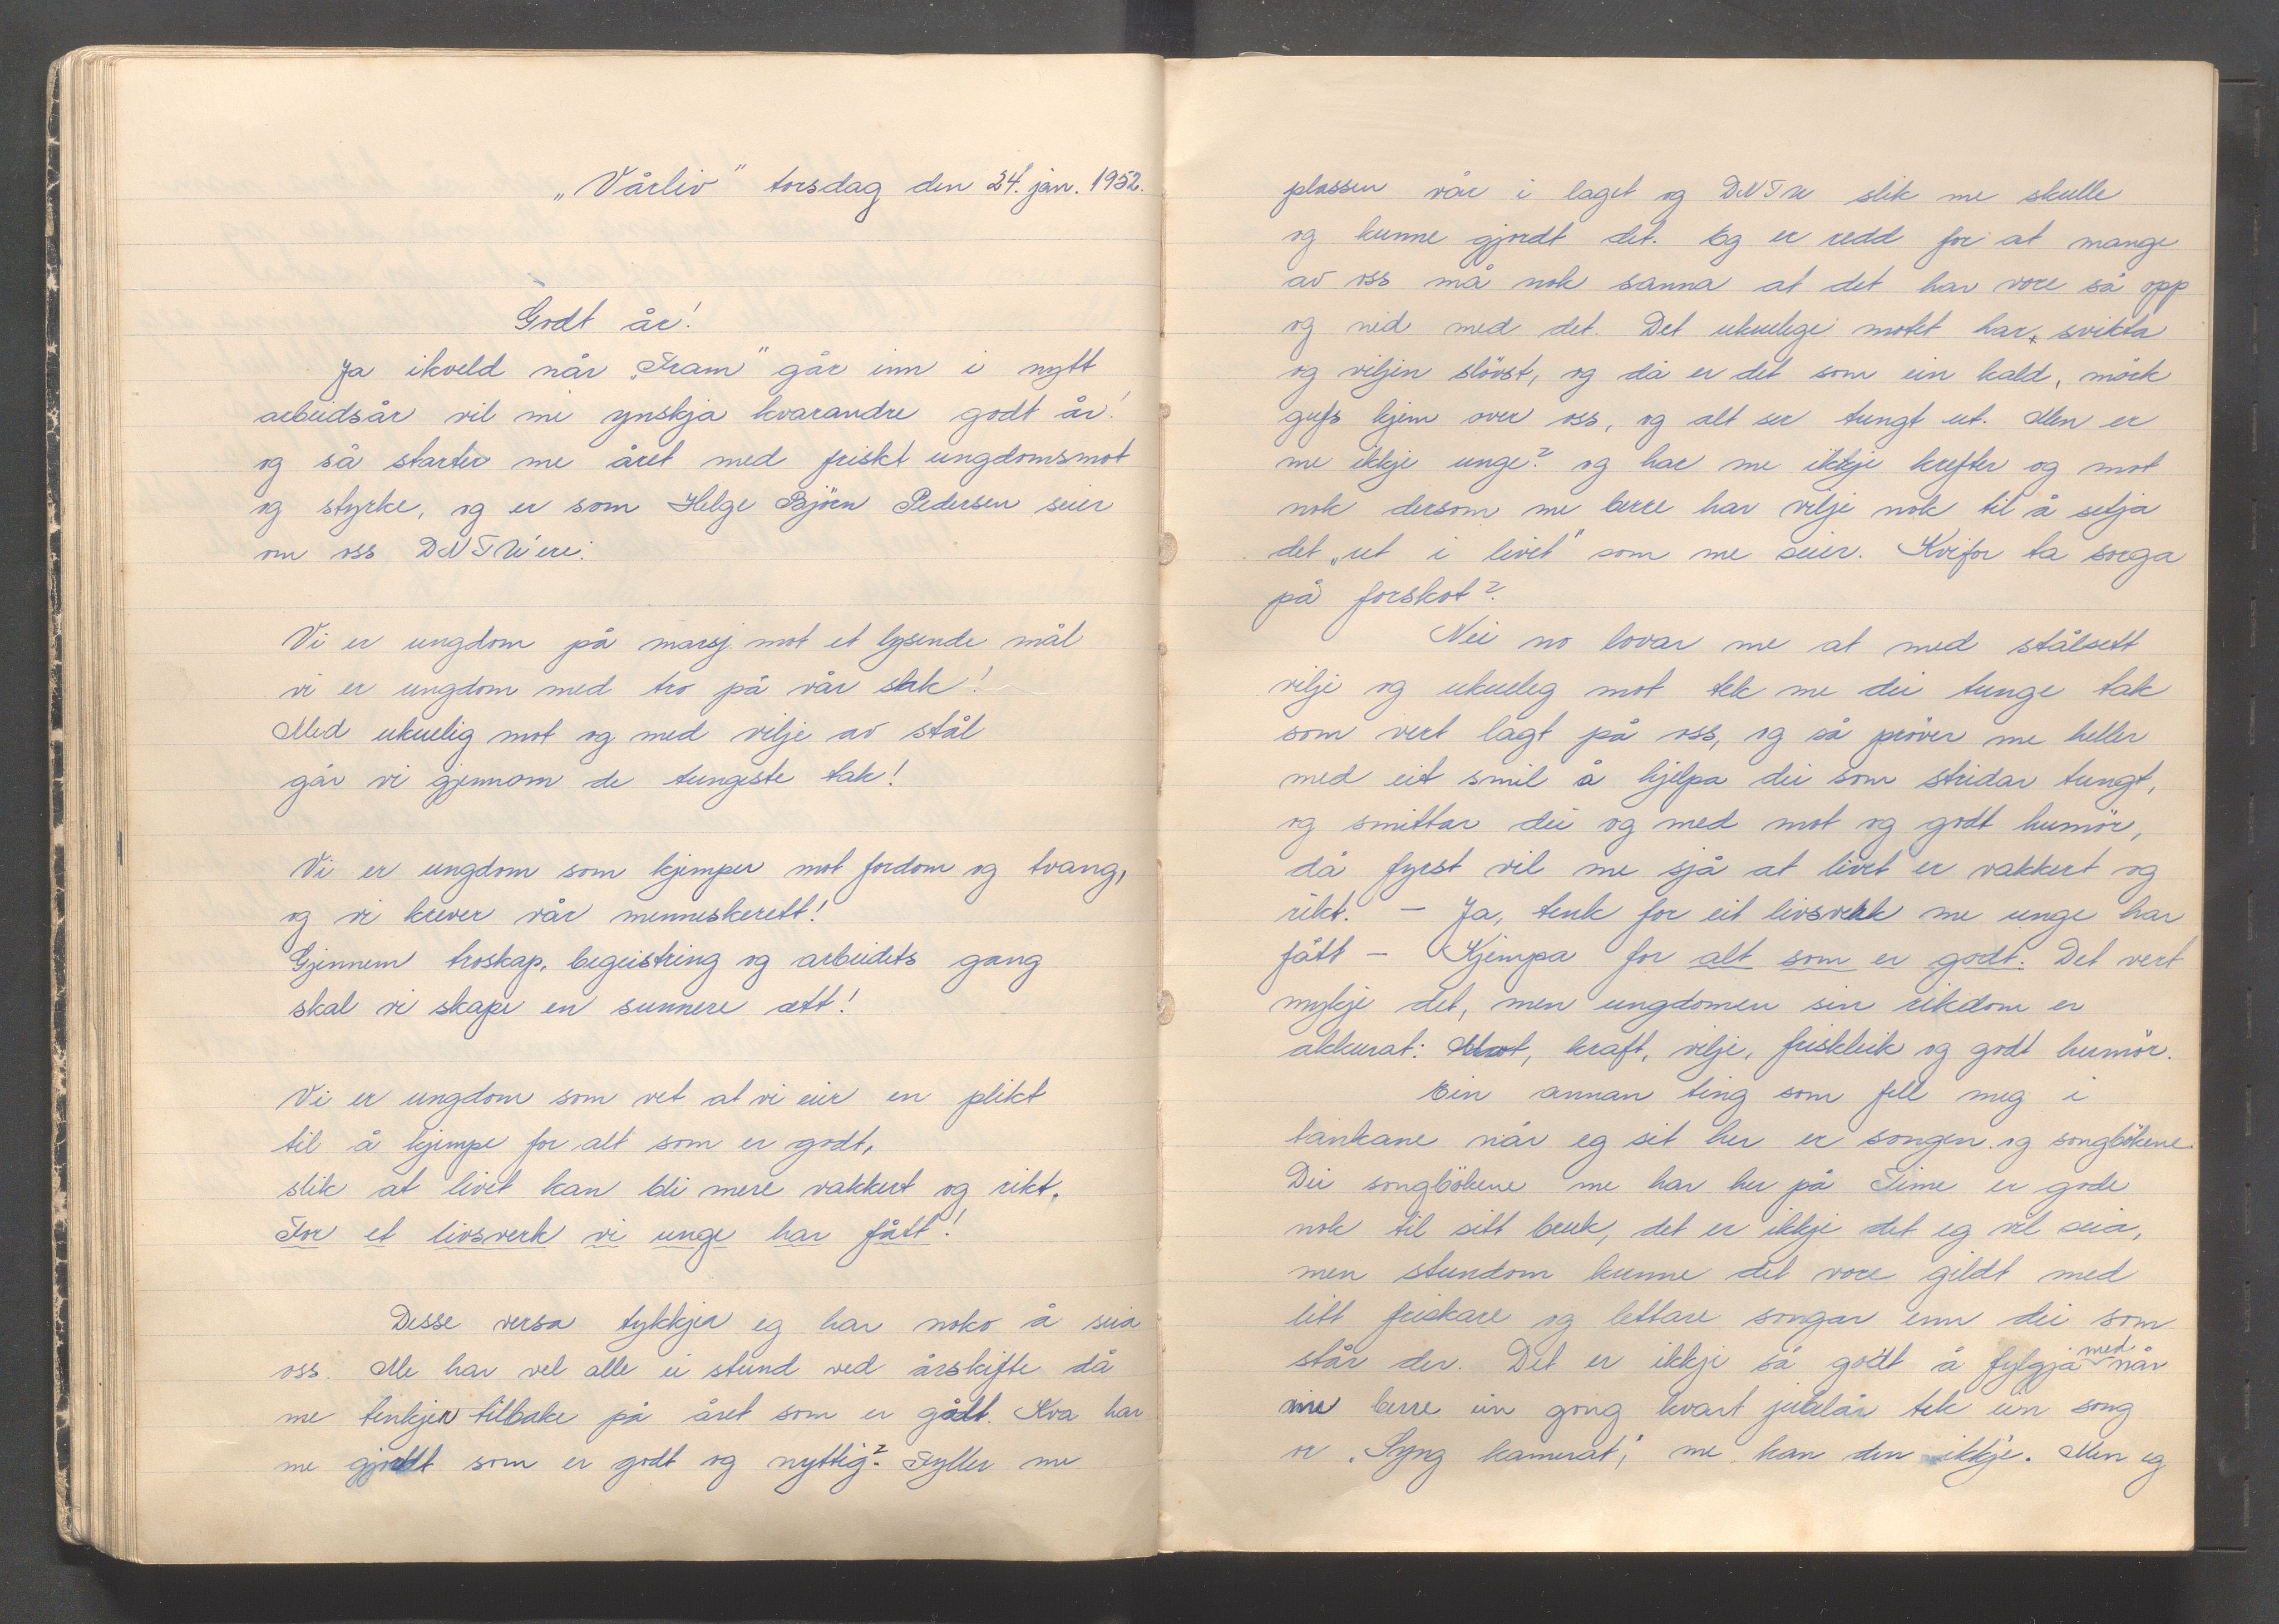 „Vårliv" torsdag den 24. jan. 1952.
Godt år!
Ja ikveld når „Fram" går inn i nytt
arbeidsår vil me ynskja kvarandre godt år!
og så starter me året med friskt ungdomsmot
og styrke, og er som Helge Björn Pedersen seier
om oss DNTU'ere:
Vi er ungdom på marsj mot et lysende mål
vi er ungdom med tro på vår sak!
Med ukuelig mot og med vilje av stål
går vi gjennom de tungeste tak!
Vi er ungdom som kjemper mot fordom og tvang,
og vi krever vår menneskerett!
Gjennem troskap, begeistring og arbeidets gang
skal vi skape en sunnere ætt!
Vi er ungdom som vet at vi eier en plikt
til å kjempe for alt som er godt,
slik at livet kan bli mere vakkert og rikt.
For et livsverk vi unge har fått!
Desse versa tykkjer eg har noko å seia
oss. Me har vel alle ei stund ved årskifte då
me tenkjer tilbake på året som er gådt. Kva har
me gjordt som er godt og nyttig? Fyller me
plassen vår i laget og DNTU slik me skulle
og kunne gjordt det. Eg er redd for at mange
av oss må nok sanna at det har vore så opp
og ned med det. Det ukuelege motet har svikta
og viljen slövst, og då er det som ein kald, mörk
gufs kjem over oss, og alt ser tungt ut. Men er
me ikkje unge? og har me ikkje krefter og mot
nok dersom me berre har vilje nok til å setja
det „ut i livet" som me seier. Kvifor ta sorga
på forskot?
Nei no lovar me at med stålsett
vilje og ukueleg mot tek me dei tunge tak
som vert lagt på oss, og så pröver me heller
med eit smil å hjelpa dei som stridar tungt,
og smittar dei og med mot og godt humör,
då fyrst vil me sjå at livet er vakkert og
rikt. – Ja, tenk for eit livsverk me unge har
fått – Kjempa for alt som er godt. Det vert
mykje det, men ungdomen sin rikdom er
akkurat: Mot, kraft, vilje, friskleik og godt humör.
Ein annan ting som fell meg i
tankane når eg sit her er songen og songbökene.
Dei songbökene me har her på Time er gode
nok til sitt bruk, det er ikkje det eg vil seia,
men stundom kunne det vore gildt med
litt friskare og lettare songar enn dei som
står der. Det er ikkje så godt å fylgja med når
me berre ein gong kvart jubelår tek ein song
or „Syng kamerat", me kan den ikkje. Men eg